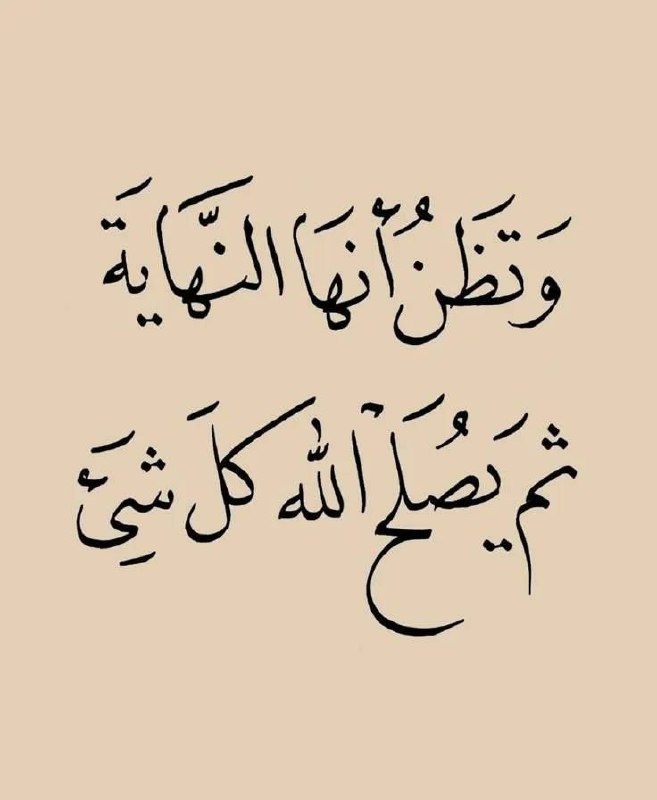 وَتظَنُ أنهَا النَّهايةَ
ثم يَصُلَح الله كلَ شِئَ